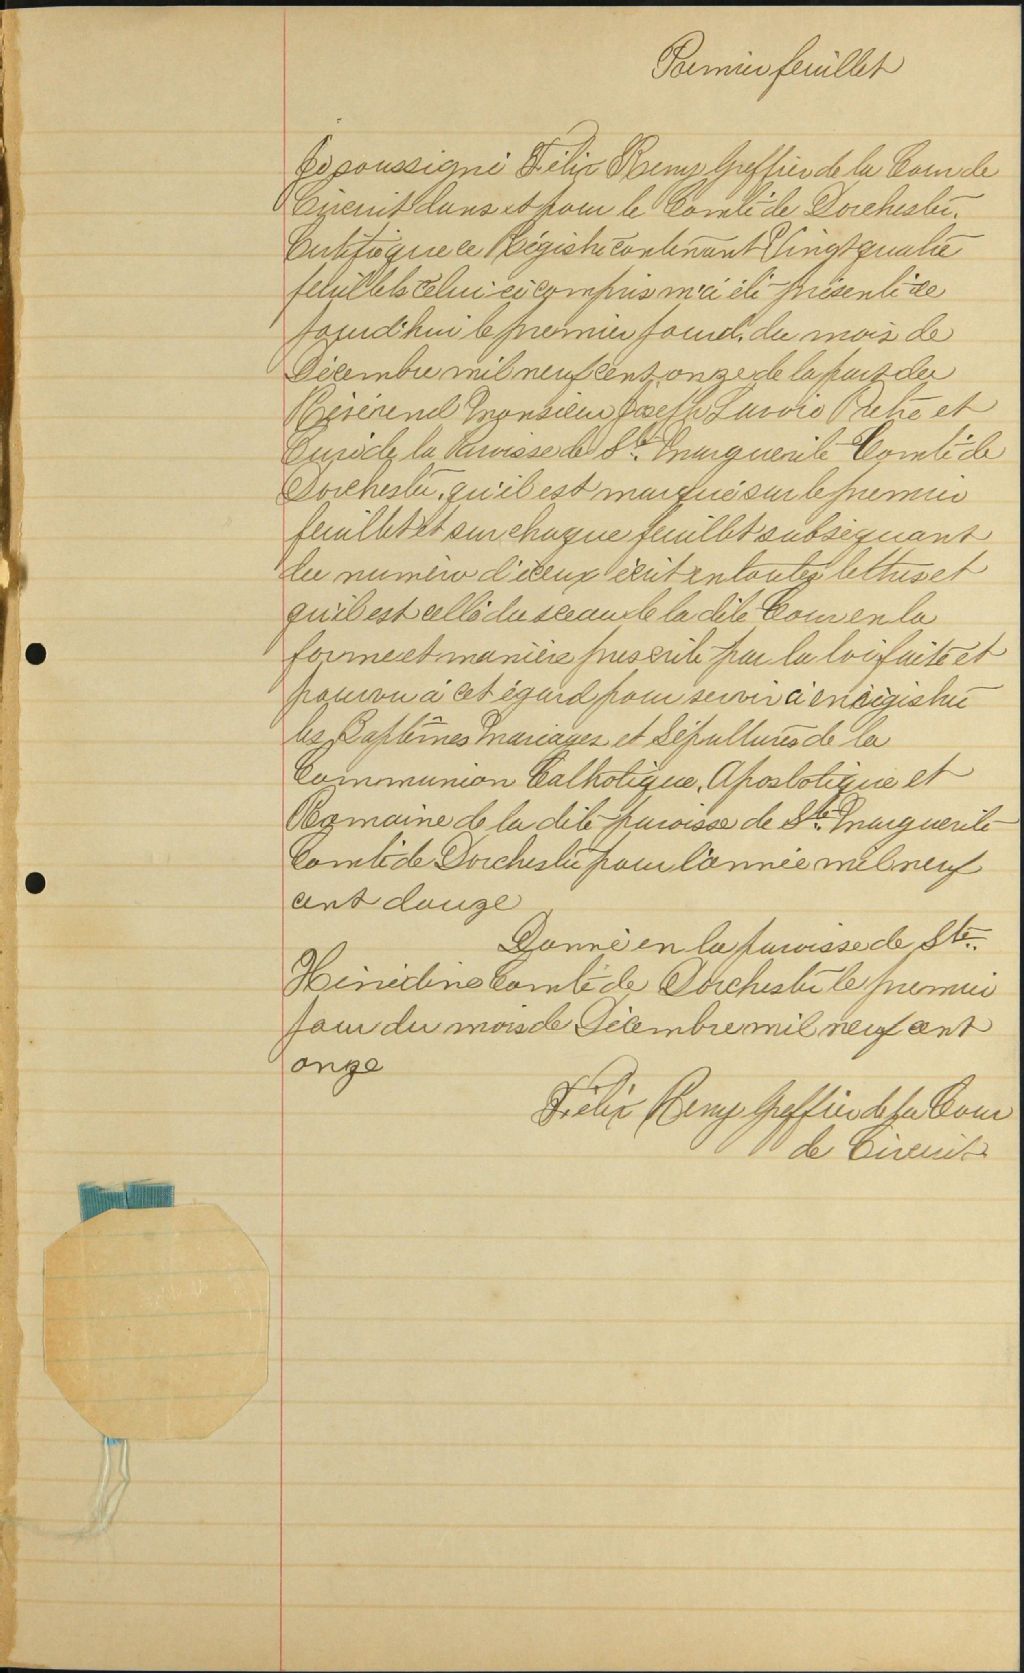 Premier feuillet
Je soussigné Félix Remy Greffier de la Cour de
Circuit dans et pour le Comté de Dorchester.
Certifie que ce Régistre contenant Vingt quatre
feuillets celui-ci compris m'a été présenté ce
jourd'hui le premier jour du mois de
Décembre mil neuf cent onze de la part du
Révérend Monsieur Joseph Lavoie Prêtre et
Curé de la Paroisse de Ste. Marguerite Comté de
Dorchester, qu'il est marqué sur le premier
feuillet et sur chaque feuillet subséquant
du numéro d'iceux écrit en toutes lettres et
qu'il est cellé du sceau de la dite Cour en la
forme et manière prescrite par la loi faite et
pourvu à cet égard pour servir à enrégistré
les Baptêmes Mariages et Sépultures de la
Communion Catholique, Apostolique et
Romaine de la dite paroisse de Ste. Marguerite
Comté de Dorchester pour l'année mil neuf
cent douze
Donné en la paroisse de Ste.
Hénédine Comté de Dorchester le premier
jour du mois de Décembre mil neuf cent
onze
Félix Remy Greffier de la Cour
de Circuit